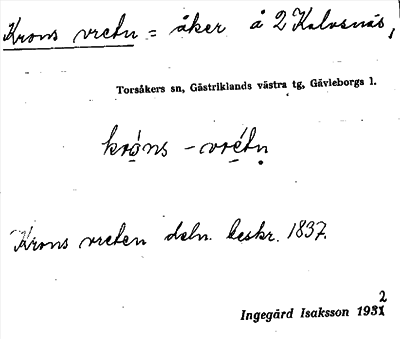 Krons vretn = åker å 2 Kalvsnäs,
Torsåkers sn, Gästriklands västra tg, Gävleborgs l.
krọ́ns - vrétṇ
Krons vreten deln. beskr. 1837.
2
Ingegärd Isaksson 1931